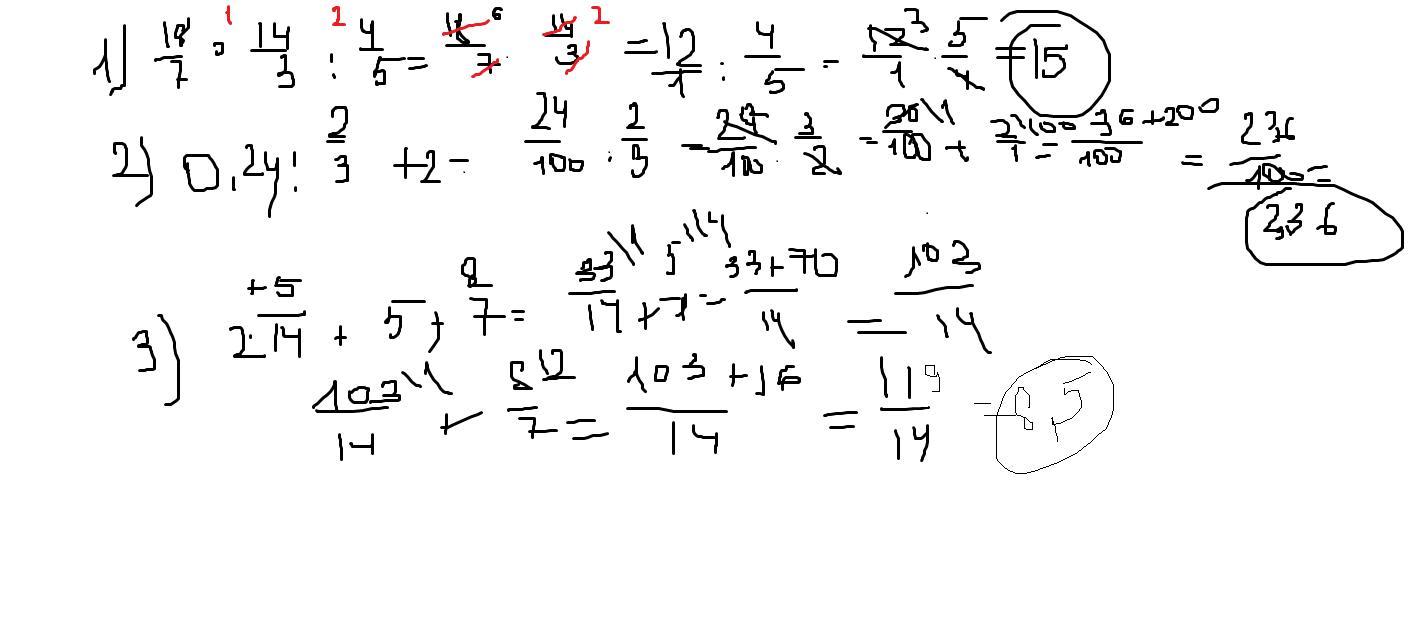 1) 18/7 · 14/3 : 4/5 = 18/7 · 14/3 = 12/1 : 4/5 = 12/1 · 5/4 = 15
2) 0,24 : 2/3 + 2 = 24/100 : 2/3 = 24/100 · 3/2 = 36/100 + 2/1 = 36+200/100 = 236/100 = 2,36
3) 2 5/14 + 5 + 8/7 = 33/14 + 5/1 = 33+70/14 = 103/14
103/14 + 8/7 = 103+16/14 = 119/14 = 8,5